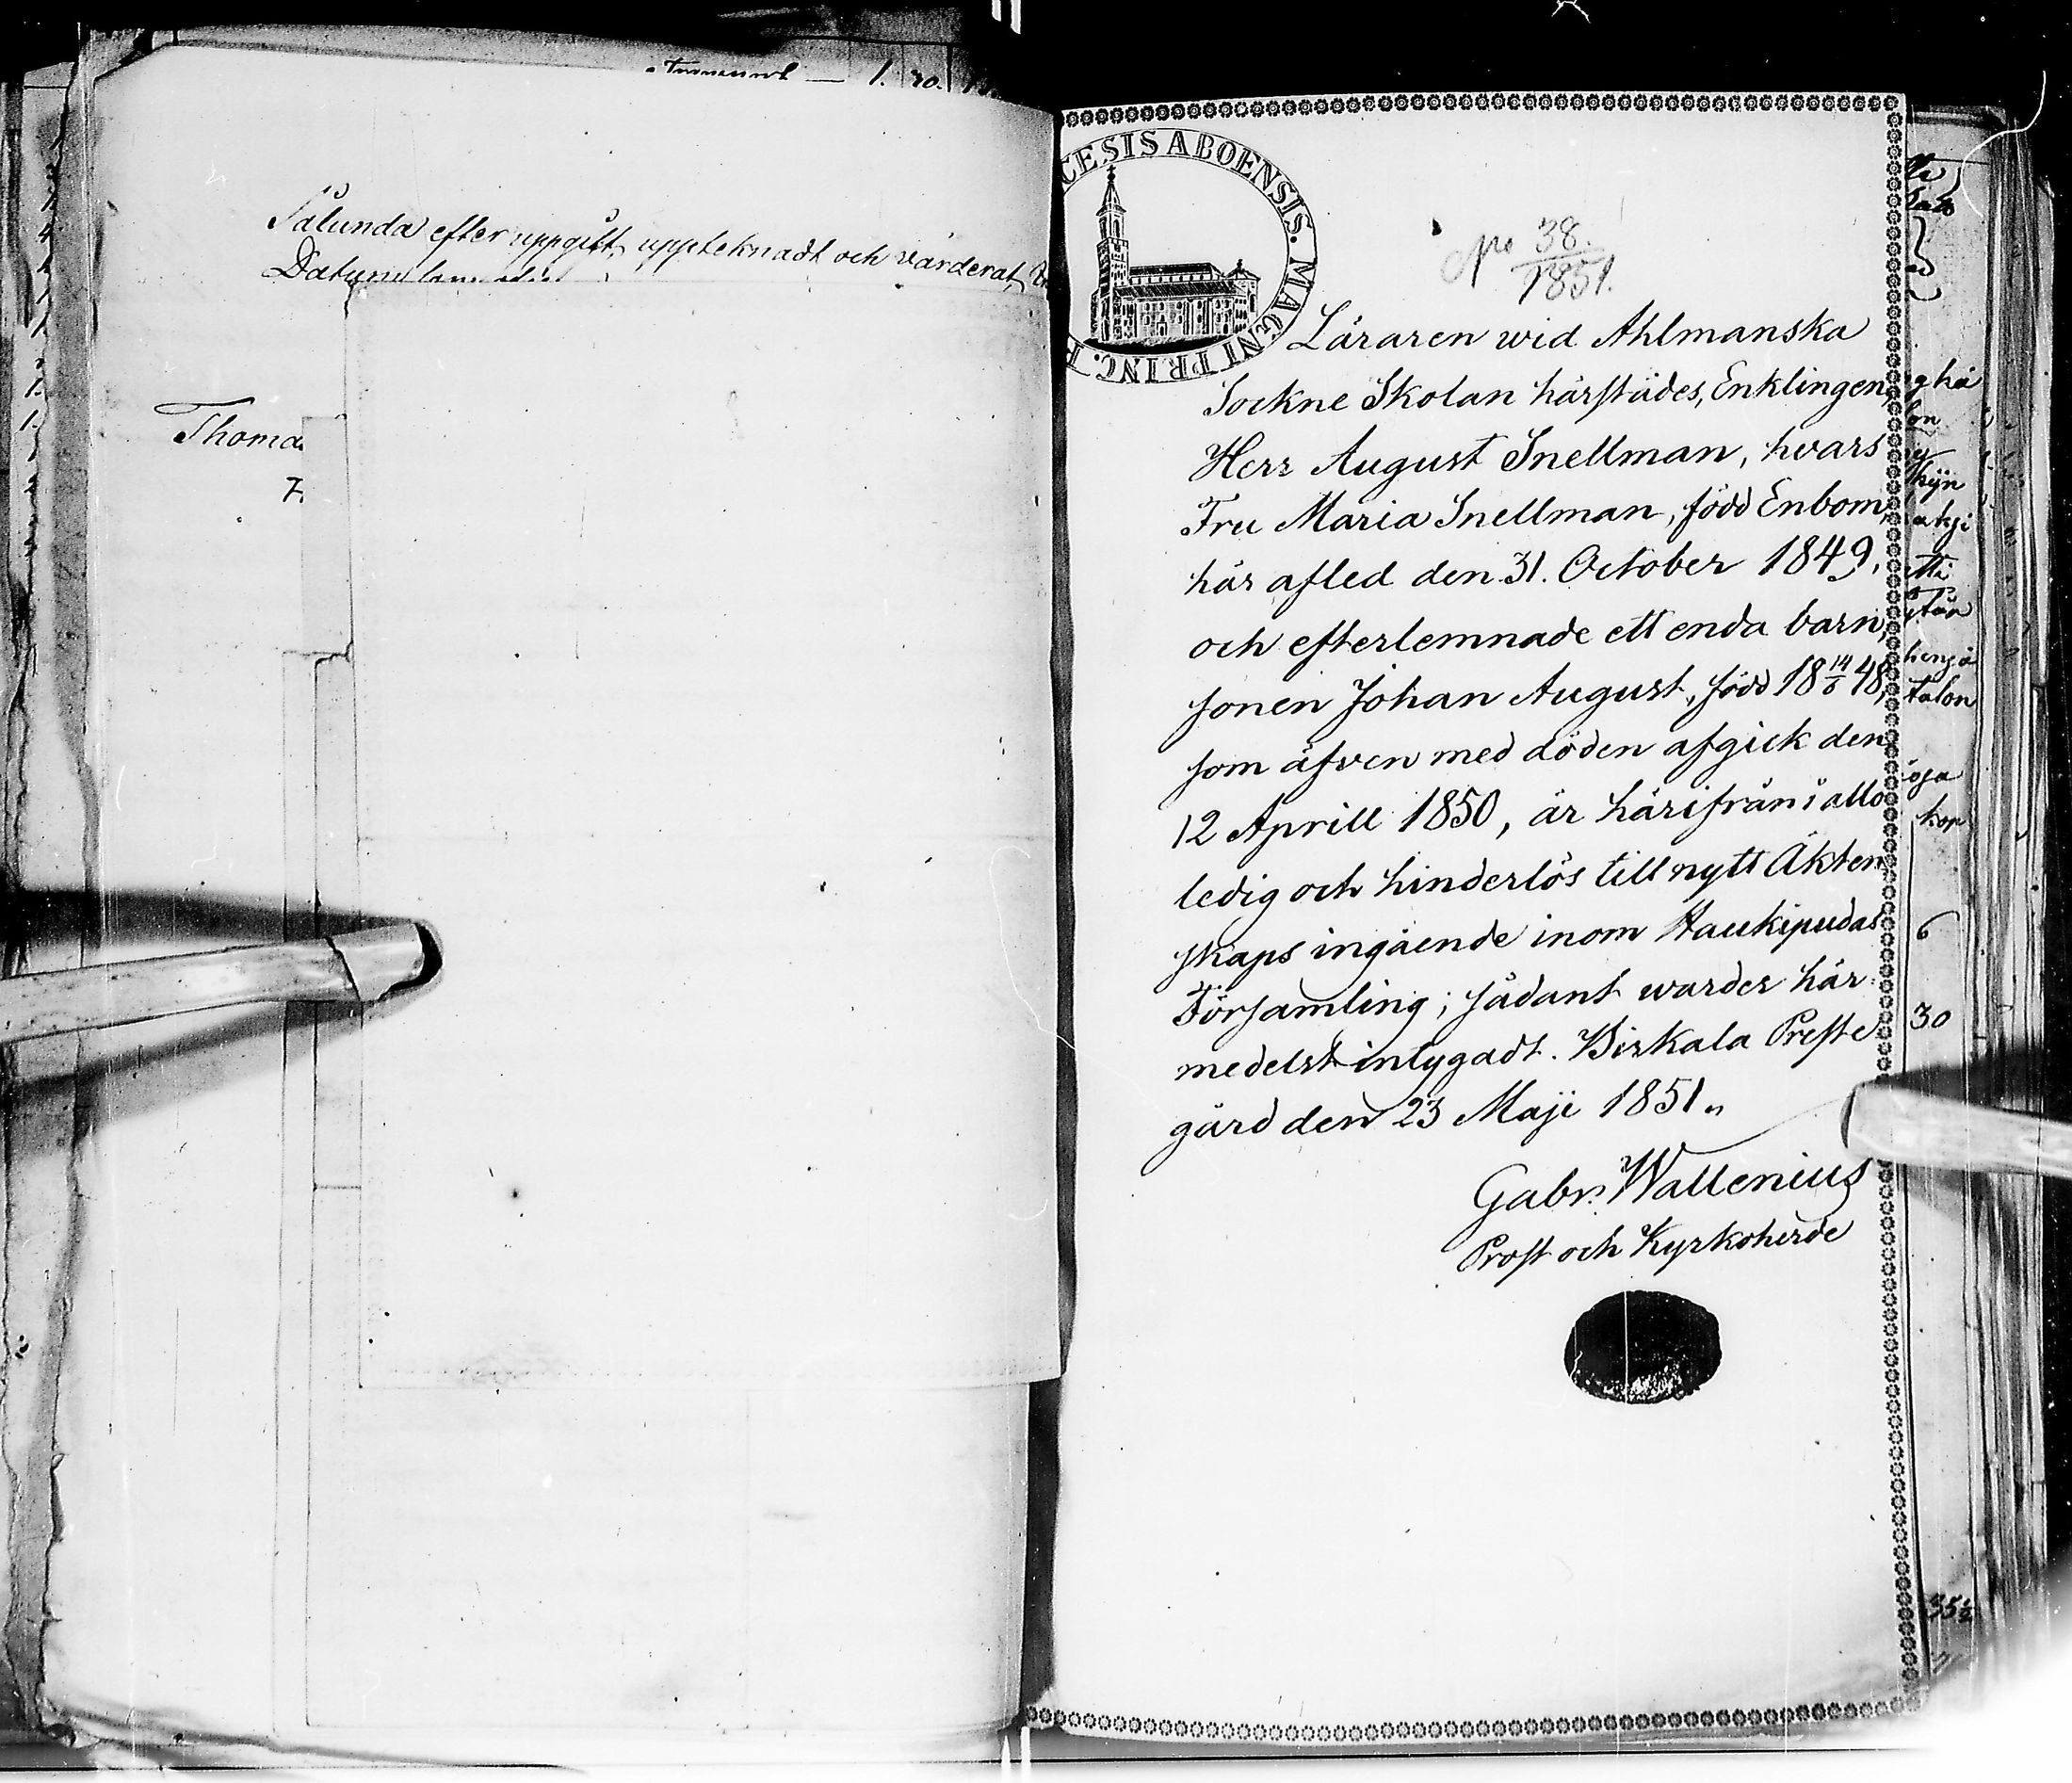 1. 20.
Sålunda efter uppgift, uppteknadt och värderat,
Datum
Thoma
7.
CESIS ABOENSIS. MAGNI PRINC. F
No 38.
1851.
Läraren wid Ahlmanska
Sockne Skolan härstädes, Enklingen,
Herr August Snellman, hvars
Fru Maria Snellman, född Enbom,
här afled den 31. October 1849,
och efterlemnade ett enda barn,
sonen Johan August, född 18 14/6 48,
som äfven med döden afgick den
12 Aprill 1850, är härifrån i allo
ledig och hinderlös till nytt Äkten
skaps ingående inom Haukipudas
Församling; sådant warder här
medelst intygadt. Birkala Preste
gård den 23 Maji 1851.
Gabr. Wallenius
Prost och Kyrkoherde
talon
kop
6
30
35½